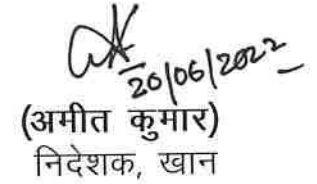 20/06/2022
(अमीत कुमार)
निदेशक, खान